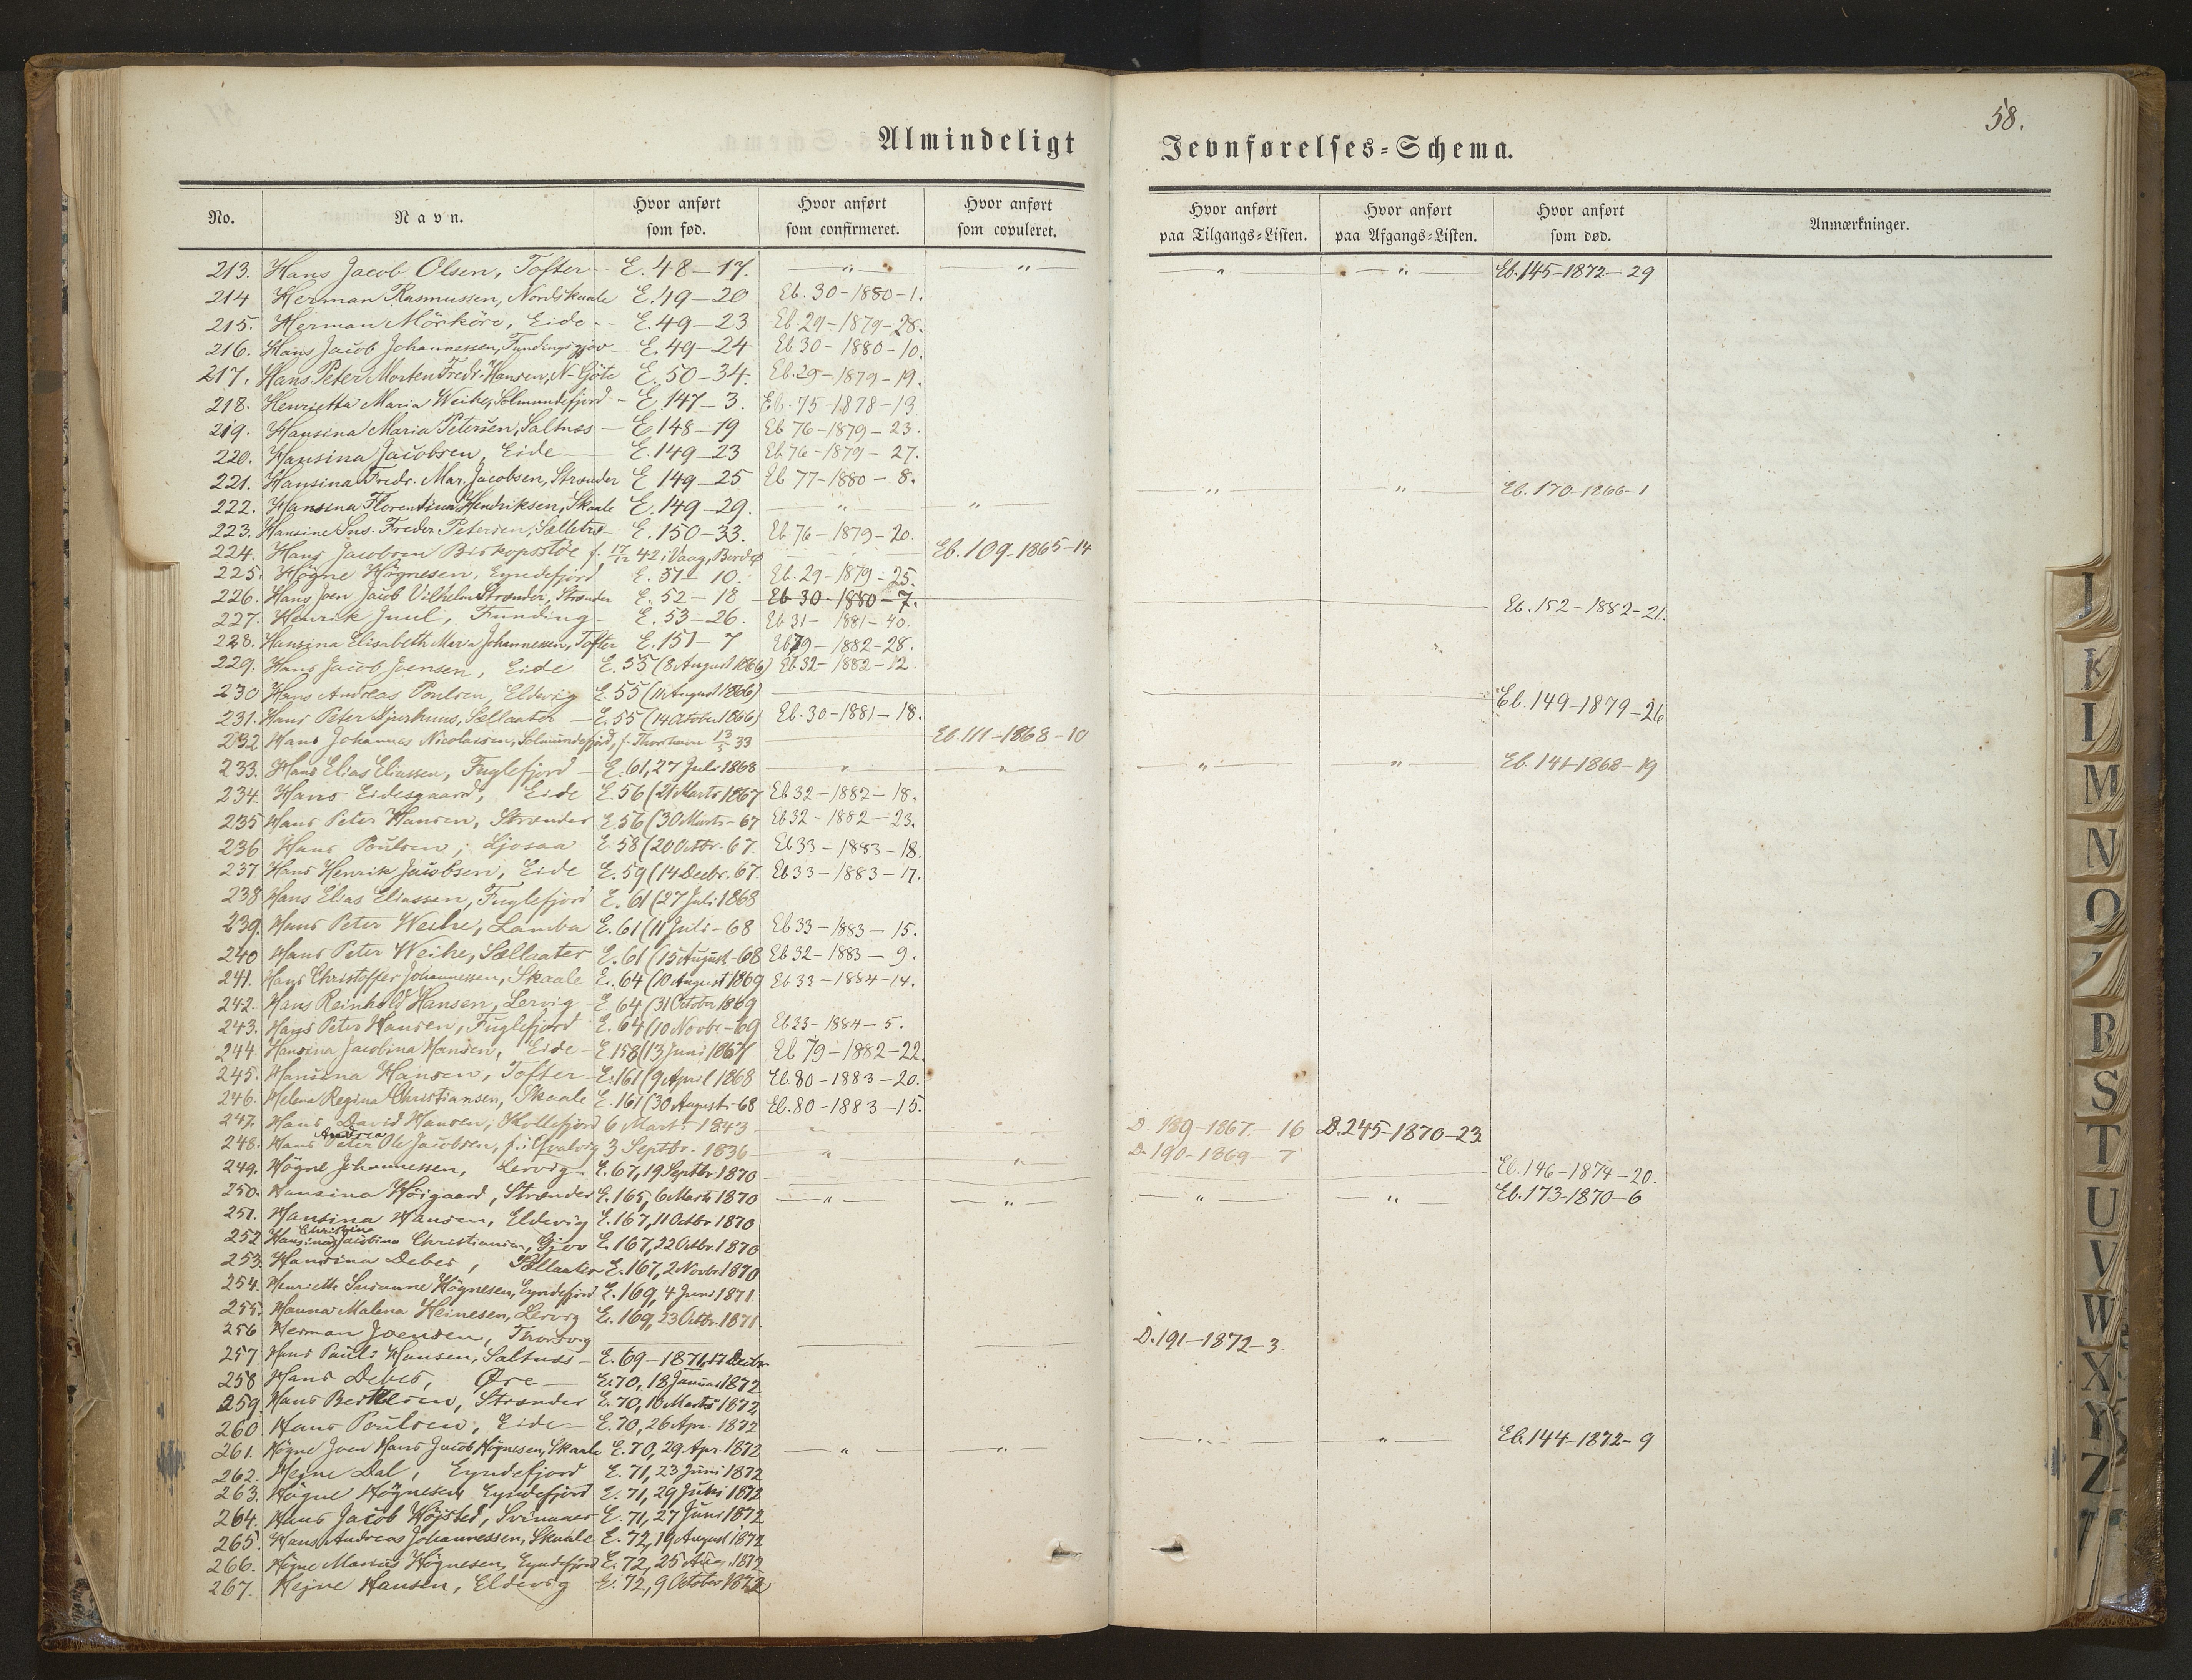 58.
Almindeligt Jevnførelses-Schema.
No. Navn. Hvor anført som fød. Hvor anført som confirmeret. Hvor anført som copuleret. Hvor anført paa Tilgangs-Listen. Hvor anført paa Afgangs-Listen. Hvor anført som død. Anmærkninger.
213. Hans Jacob Olsen, Tofter - E. 48-17. — " — — " — — " — — " — Eb. 145-1872-29
214 Herman Rasmussen, Nordskaale E. 49-20 Eb. 30-1880-1.
215. Herman Mörköre, Eide - E. 49-23 Eb. 29-1879-28.
216. Hans Jacob Johannessen, Fundingsgjov E. 49-24 Eb 30-1880-10.
217. Hans Peter Morten Fredr. Hansen, N-Göte E. 50-34. Eb. 29-1879-19.
218. Henrietta Maria Weihe, Solmundefjord - E. 147-3. Eb. 75-1878-13.
219. Hansina Maria Petersen, Saltnæs - E 148-19 Eb 76-1879-23.
220. Hansina Jacobsen, Eide - E. 149-23 Eb 76-1879-27.
221. Hansina Fredr. Mar. Jacobsen, Strænder E 149-25 Eb 77-1880-8.
222. Hansina Florentina Hendriksen, Skaale E. 149-29. — " — — " — — " — — " — Eb. 170-1866-1
223. Hansine Sus. Freder. Petersen, E. 150-33. Eb 76-1879-20.
224. Hans Jacobsen Biskopsstöe f. 17/12 42 i Vaag, Bordø — Eb. 109-1865-14
225. Högne Högnesen, Eyndefjord E. 51-10. Eb. 29-1879-25.
226. Hans Joen Jacob Vilhelm Strænder, Strænder E. 52-18 Eb 30-1880-7. — Eb. 152-1882-21.
227. Henrik Juul, Funding - E. 53-26. Eb 31-1881-40.
228. Hansina Elisabeth Maria Johannessen, Tofter E. 151-7 Eb 79-1882-28.
229. Hans Jacob Joensen, Eide E. 55 (8 August 1866) Eb 32-1882-12.
230 Hans Andreas Poulsen, Eldevig E. 55 (11 August 1866) — Eb. 149-1879-26
231. Hans Peter Djurhuus, Sællaater - E. 55 (14 October 1866) Eb. 30-1881-18.
232 Hans Johannes Nicolaisen, Solmundefjord, f. Thorshavn 13/5 33 — Eb. 111-1868-10
233. Hans Elias Eliassen, Fuglefjord - E. 61, 27 Juli 1868 — " — — " — — " — — " — Eb. 141-1868-19
234. Hans Eidesgaard, Eide E. 56 (21 Marts 1867 Eb 32-1882-18.
235 Hans Peter Hansen, Strænder E. 56 (30 Marts - 67 Eb 32-1882-23.
236 Hans Poulsen, Ljosaa E. 58 (20 Octbr. 67. Eb 33-1883-18.
237 Hans Henrik Jacobsen, Eide E. 59 (14 Decbr. 67. Eb 33-1883-17.
238 Hans Elias Eliassen, Fuglefjord E. 61 (27 Juli 1868
239. Hans Peter Weihe, Lamba E. 61 (11 Juli - 68 Eb 33-1883-15.
240 Hans Peter Weihe, Sællaater E. 61 (15 August - 68 Eb 32-1883-9.
241. Hans Christoffer Johannessen, Skaale E. 64 (10 August 1869 Eb 33-1884-14.
242. Hans Reinhold Hansen, Lervig - E 64 (31 October 1869
243. Hans Peter Hansen, Fuglefjord E. 64 (10 Novbr - 69 Eb 33-1884-5.
244 Hansina Jacobina Hansen, Eide - E 158 (13 Juni 1867 Eb 79-1882-22.
245. Hansina Hansen, Tofter - E. 161 (9 April 1868 Eb. 80-1883-20.
246. Helena Regina Christiansen, Skaale E. 161 (30 August - 68 Eb. 80-1883-15.
247. Hans David Hansen, Kollefjord 6 Marts 1843 — " — D. 189-1867-16 D. 245-1870-23
248. Hans Andrea Peter Ole Jacobsen, f. i Qvalvig 3 Septbr. 1836 — " — — " — D. 190-1869-7
249. Högne Johannessen, Lervig - E. 67, 19 Septbr. 1870 — Eb. 146-1874-20.
250. Hansina Höigaard, Strænder E. 165, 6 Marts 1870 — " — — " — — " — — " — Eb. 173-1870-6
251. Hansina Hansen, Eldevig E. 167, 11 Octbr 1870
252 Hansina Christina Jacobina Christiansen, Gjov E. 167, 22 Octbr. 1870
253. Hansina Debes, Sællaater E. 167, 2 Novbr 1870
254. Henriette Susanne Högnesen, Eyndefjord E. 169, 4 Juni 1871.
255. Hanna Malena Heinesen, Lervig E. 169, 23 Octbr. 1871.
256 Herman Joensen, Thorsvig — D. 191-1872-3.
257. Hans Pauli Hansen, Saltnæs - E. 69-1871, 17 Decbr
258 Hans Debes, Øre - E. 70, 18 Januar 1872
259. Hans Berthelsen, Strænder E. 70, 10 Marts 1872
260 Hans Poulsen, Eide - E. 70, 26 Apr. 1872
261. Högne Joen Hans Jacob Högnesen, Skaale E. 70, 29 Apr. 1872 — " — — " — — " — — " — Eb. 144-1872-9
262. Hejne Dal, Eyndefjord E. 71, 23 Juni 1872
263. Högne Högnesen, Eyndefjord E. 71, 29 Juni 1872
264. Hans Jacob Höjsted, Svinaaer E. 71, 27 Juni 1872
265. Hans Andreas Johannessen, Skaale E. 72, 19 August 1872
266. Högne Marius Högnesen, Eyndefjord E. 72, 25 Aug. 1872
267. Hejne Hansen, Eldevig E. 72, 9 October 1872
J
K
L
M
N
O
R
S
T
U
V
W
X
Y
Z